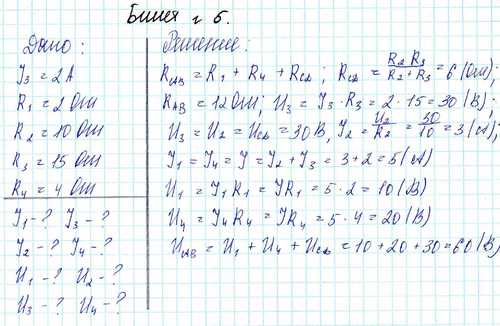 Билет г 5.
Дано:
I3 = 2 А
R1 = 2 Ом
R2 = 10 Ом
R3 = 15 Ом
R4 = 4 Ом
I1 - ? I3 - ?
I2 - ? I4 - ?
U1 - ? U2 - ?
U3 - ? U4 - ?
Решение:
RАВ = R1 + R4 + RСД ; RСД = R2 R3 / R2 + R3 = 6 (Ом);
RАВ = 12 Ом; U3 = I3 · R3 = 2 · 15 = 30 (В);
U3 = U2 = UСД = 30 В, I2 = U2 / R2 = 30 / 10 = 3 (А);
I1 = I4 = I = I2 + I3 = 3 + 2 = 5 (А)
U1 = I1 R1 = I R1 = 5 · 2 = 10 (В)
U4 = I4 R4 = I R4 = 5 · 4 = 20 (В)
UАВ = U1 + U4 + UСД = 10 + 20 + 30 = 60 (В)